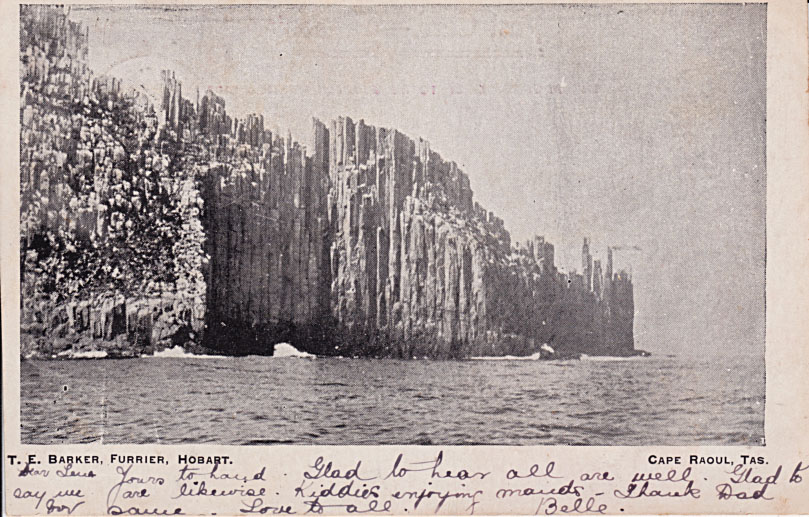 T. E. BARKER, FURRIER, HOBART.
CAPE RAOUL, TAS.
Dear Lena Yours to hand. Glad to hear all are well. Glad to
say we are likewise. Kiddies enjoying - Thank Dad
for same. Love to all. Belle.